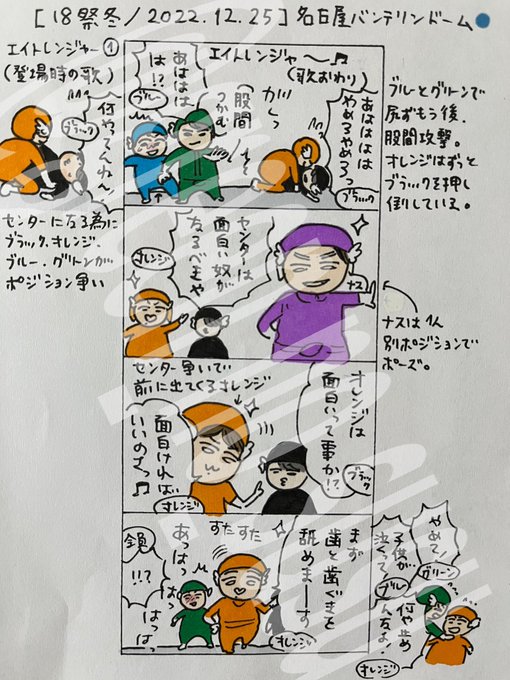 [18祭冬/2022.12.25]名古屋バンテリンドーム
エイトレンジャー①
(登場時の歌)
何やってんねん
ブラック
センターになる為に
ブラック、オレンジ、
ブルー、グリーンが
ポジション争い
エイトレンジャ〜♪
(歌おわり)
あははははは
やめろやめろっ
ブラック
ガバーっ
(股間
つかむ
あははは
は!?
ブルー
ブルーとグリーンで
尻ずもう後、
股間攻撃。
オレンジはずっと
ブラックを押し
倒している。
ナス
センターは
面白い奴が
なるべきや
オレンジ
ナスは1人
別ポジションで
ポーズ。
センター争いで
前に出てくるオレンジ
オレンジは
面白いって事か!?
ブラック
面白ければ
いいのさ♪
オレンジ
まず
歯と歯ぐきを
舐めまーす
オレンジ
すたすた
あっはっ
はっ
はっはっ
鎖!!?
やめて!
グリーン
子供が
泣くって
ブルー
何や止め
んなよ!
オレンジ